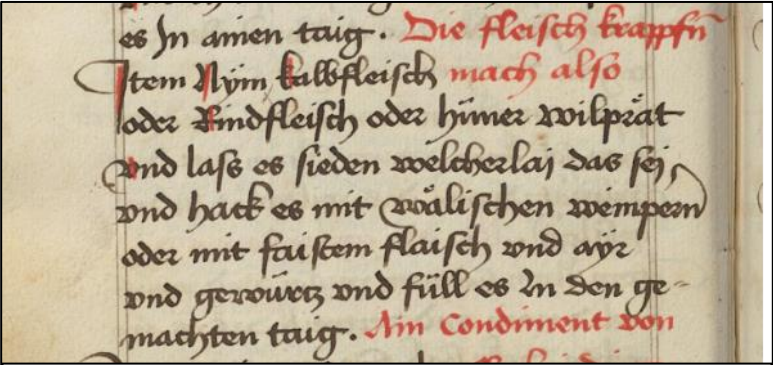 es In ainen taig. Die fleisch krapfn̄
Item Nÿm kalbfleisch mach also
oder Rindfleisch oder hüner wilprät
vnd lass es sieden welcherlai das sei,
vnd hack es mit wälischen weinpern
oder mit faistem flaisch vnd aÿr
vnd gewürcz vnd füll es In den ge-
machten taig. Ain Condiment von